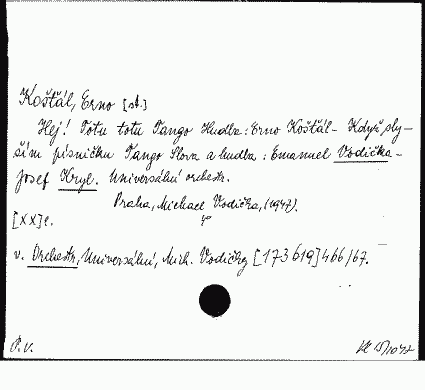 Koštál, Erno [st.]
Hej! Totu totu Tango Hudba: Erno Koštál - Když sly-
ším písničku Tango Slova a hudba: Emanuel Vodička -
Josef Kryl. Universální orchestr.
Praha, Michael Vodička, (1947).
[XX]c.
v. Orchestr, Universální, Mich. Vodičky [173619] 466/67.
P.V. Kl 15/10 47